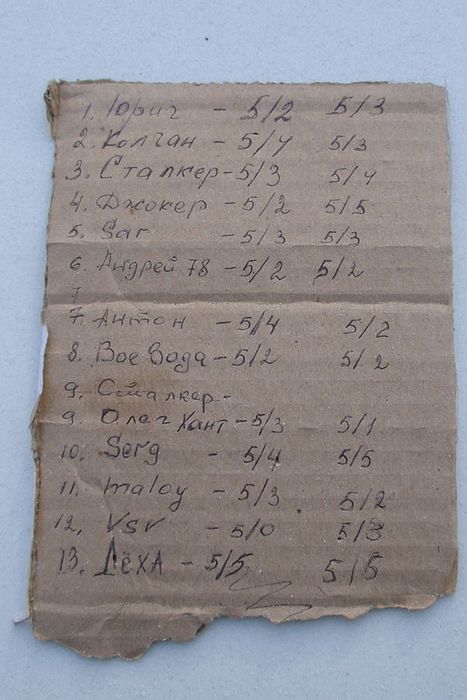 1. Юрич - 5/2 5/3
2. Колган - 5/4 5/3
3. Сталкер - 5/3 5/4
4. Джокер - 5/2 5/5
5. Sar - 5/3 5/3
6. Андрей 78 - 5/2 5/2
7
7. Антон - 5/4 5/2
8. Воевода - 5/2 5/2
9. Сталкер -
9. Олег Хант - 5/3 5/1
10. Serg - 5/4 5/5
11. maloy - 5/3 5/2
12. Vsv - 5/0 5/3
13. Лёха - 5/5 5/5